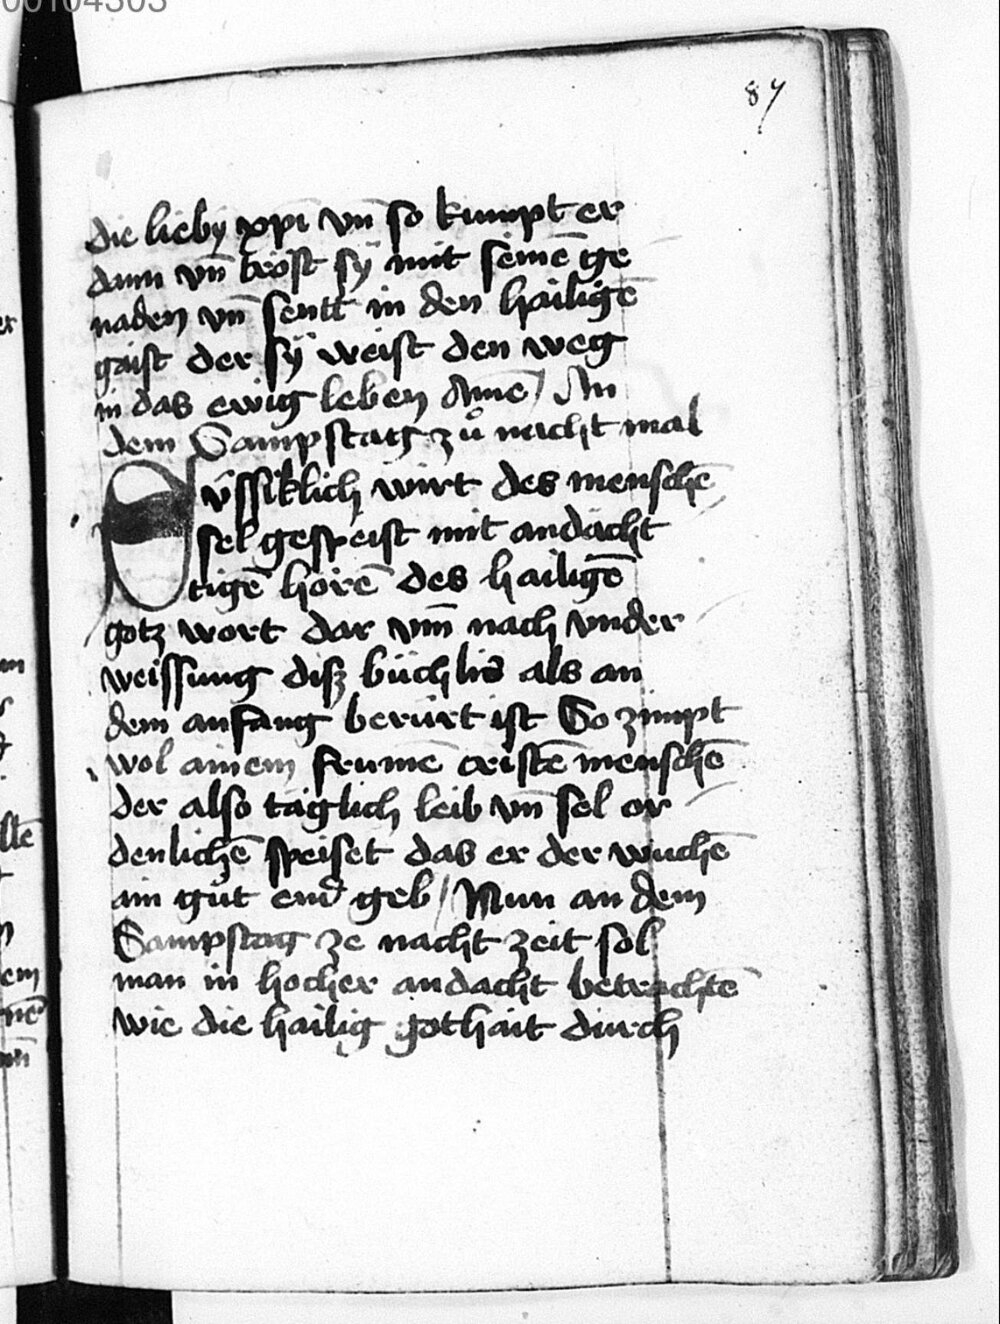 00104303
87
die lieby xpi vn̄ so kumpt er
dann vn̄ tröst sÿ mit seinē ge
naden vn̄ sentt in den hailigē
gaist der sÿ weist den weg
in das ewig leben Amē / An
dem Sampstag zů nacht mal
vssiklich wirt des menschē
sel gespeist mit andächt
tigē hörē des hailigē
gotz wort dar vm̄ nach vnder
weissung disz büchlis als an
dem anfang berürt ist So zimpt
wol ainem frumē cristē menschē
der also täglich leib vn̄ sel or
denlichē speiset das er der wuchē
ain gůt end geb / Nun an dem
Sampstag ze nacht zeit sol
man in hocher andacht betrachtē
wie die hailig gothait durch